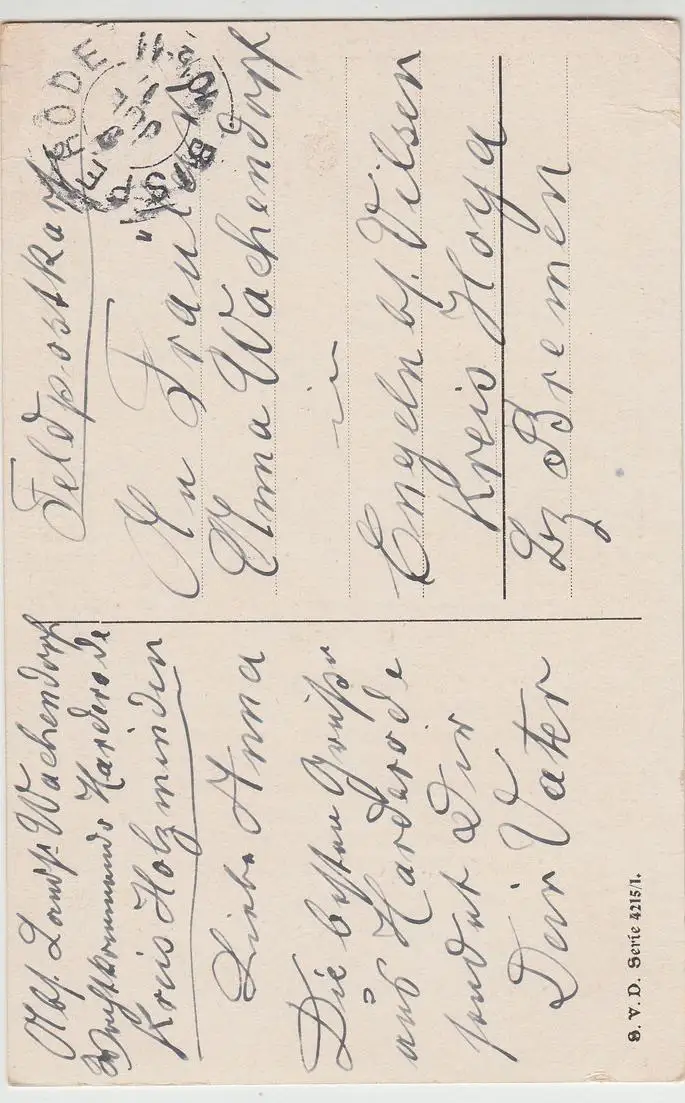 Abs. Landst. Wachendorf
Wachtkommando Harderode
Kreis Holzminden
Liebe Anna
Die besten Grüße
aus Harderode
sendet Dir
Dein Vater
S. V. D. Serie 4215/1.
Feldpostkart
An Fräulein
Anna Wachendorf
in
Engeln bj. Vilsen
Kreis Hoya
Bz Bremen